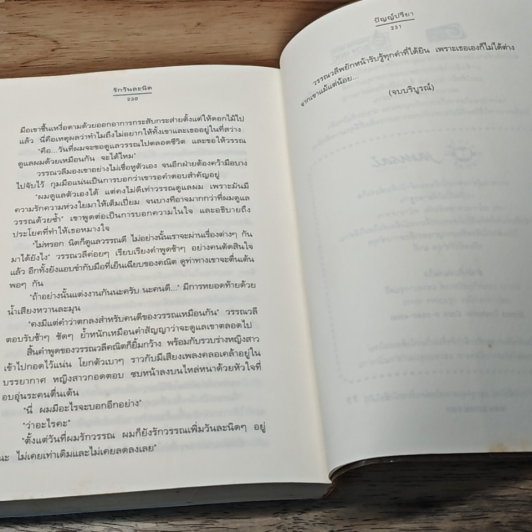 รักวันละนิด
๒๓๐
มือเขาชื้นเหงื่อตามด้วยออกอาการกระสับกระส่ายตั้งแต่ให้ดอกไม้ไป
แล้ว นี่คือเหตุผลว่าทำไมถึงไม่อยากให้ทั้งเขาและเธออยู่ในที่สว่าง
"คือ...วันที่ผมจะขอดูแลวรรณไปตลอดชีวิต และขอให้วรรณ
ดูแลผมด้วยเหมือนกัน จะได้ไหม"
วรรณวลีมองเขาอย่างไม่เชื่อหูตัวเอง จนอีกฝ่ายต้องคว้ามือบาง
ไปจับไว้ กุมมือแน่นเป็นการบอกว่าเขารอคำตอบสำคัญอยู่
"ผมดูแลตัวเองได้ แต่คงไม่ดีเท่าวรรณดูแลผม เพราะมันมี
ความรักความห่วงใยมาให้เต็มเปี่ยม จนบางทีอาจมากกว่าที่ผมดูแล
วรรณด้วยซ้ำ" เขาพูดต่อเป็นการบอกความในใจ และอธิบายถึง
ประโยคที่ทำให้เธอหมางใจ
"ไม่หรอก นิดก็ดูแลวรรณดี ไม่อย่างนั้นเราจะผ่านเรื่องต่างๆ กัน
มาได้ยังไง" วรรณวลีค่อยๆ เรียบเรียงคำพูดช้าๆ อย่างคนตัดสินใจ
แล้ว อีกทั้งยังแอบขำกับมือที่เย็นเฉียบของคณิต ดูท่าทางเขาจะตื่นเต้น
พอๆ กัน
"ถ้าอย่างนั้นแต่งงานกันนะครับ นะคนดี..." มีการหยอดท้ายด้วย
น้ำเสียงหวานละมุน
"คงมีแต่คำว่าตกลงสำหรับคนดีของวรรณเหมือนกัน" วรรณวลี
ตอบรับช้าๆ ชัดๆ ย้ำหนักเหมือนคำสัญญาว่าจะดูแลเขาตลอดไป
สิ้นคำพูดของวรรณวลีคณิตก็ยิ้มกว้าง พร้อมกับรวบร่างหญิงสาว
เข้าไปกอดไว้แน่น โยกตัวเบาๆ ราวกับมีเสียงเพลงคลอเคล้าอยู่ใน
บรรยากาศ หญิงสาวกอดตอบ ซบหน้าลงบนไหล่หนาด้วยหัวใจที่
อบอุ่นระคนตื่นเต้น
"นี่ ผมมีอะไรจะบอกอีกอย่าง"
"ว่าอะไรคะ"
"ตั้งแต่วันที่ผมรักวรรณ ผมก็ยังรักวรรณเพิ่มวันละนิดๆ อยู่
นะ ไม่เคยเท่าเดิมและไม่เคยลดลงเลย"
ปัญญ์ปรียา
๒๓๑
วรรณวลีพยักหน้ารับรู้ทุกคำที่ได้ยิน เพราะเธอเองก็ไม่ได้ต่าง
จากเขาแม้แต่น้อย...
(จบบริบูรณ์)